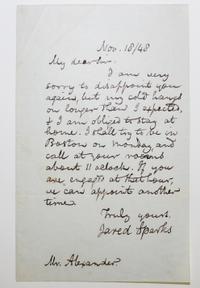 Nov. 18/48
My dear Sir,
I am very
sorry to disappoint you
again, but my cold hangs
on longer than I expected,
& I am obliged to stay at
home. I shall try to be in
Boston on Monday, and
call at your rooms
about 11 oclock. If you
are engaged at that hour,
we can appoint another
time.
Truly yours,
Jared Sparks
Mr. Alexander